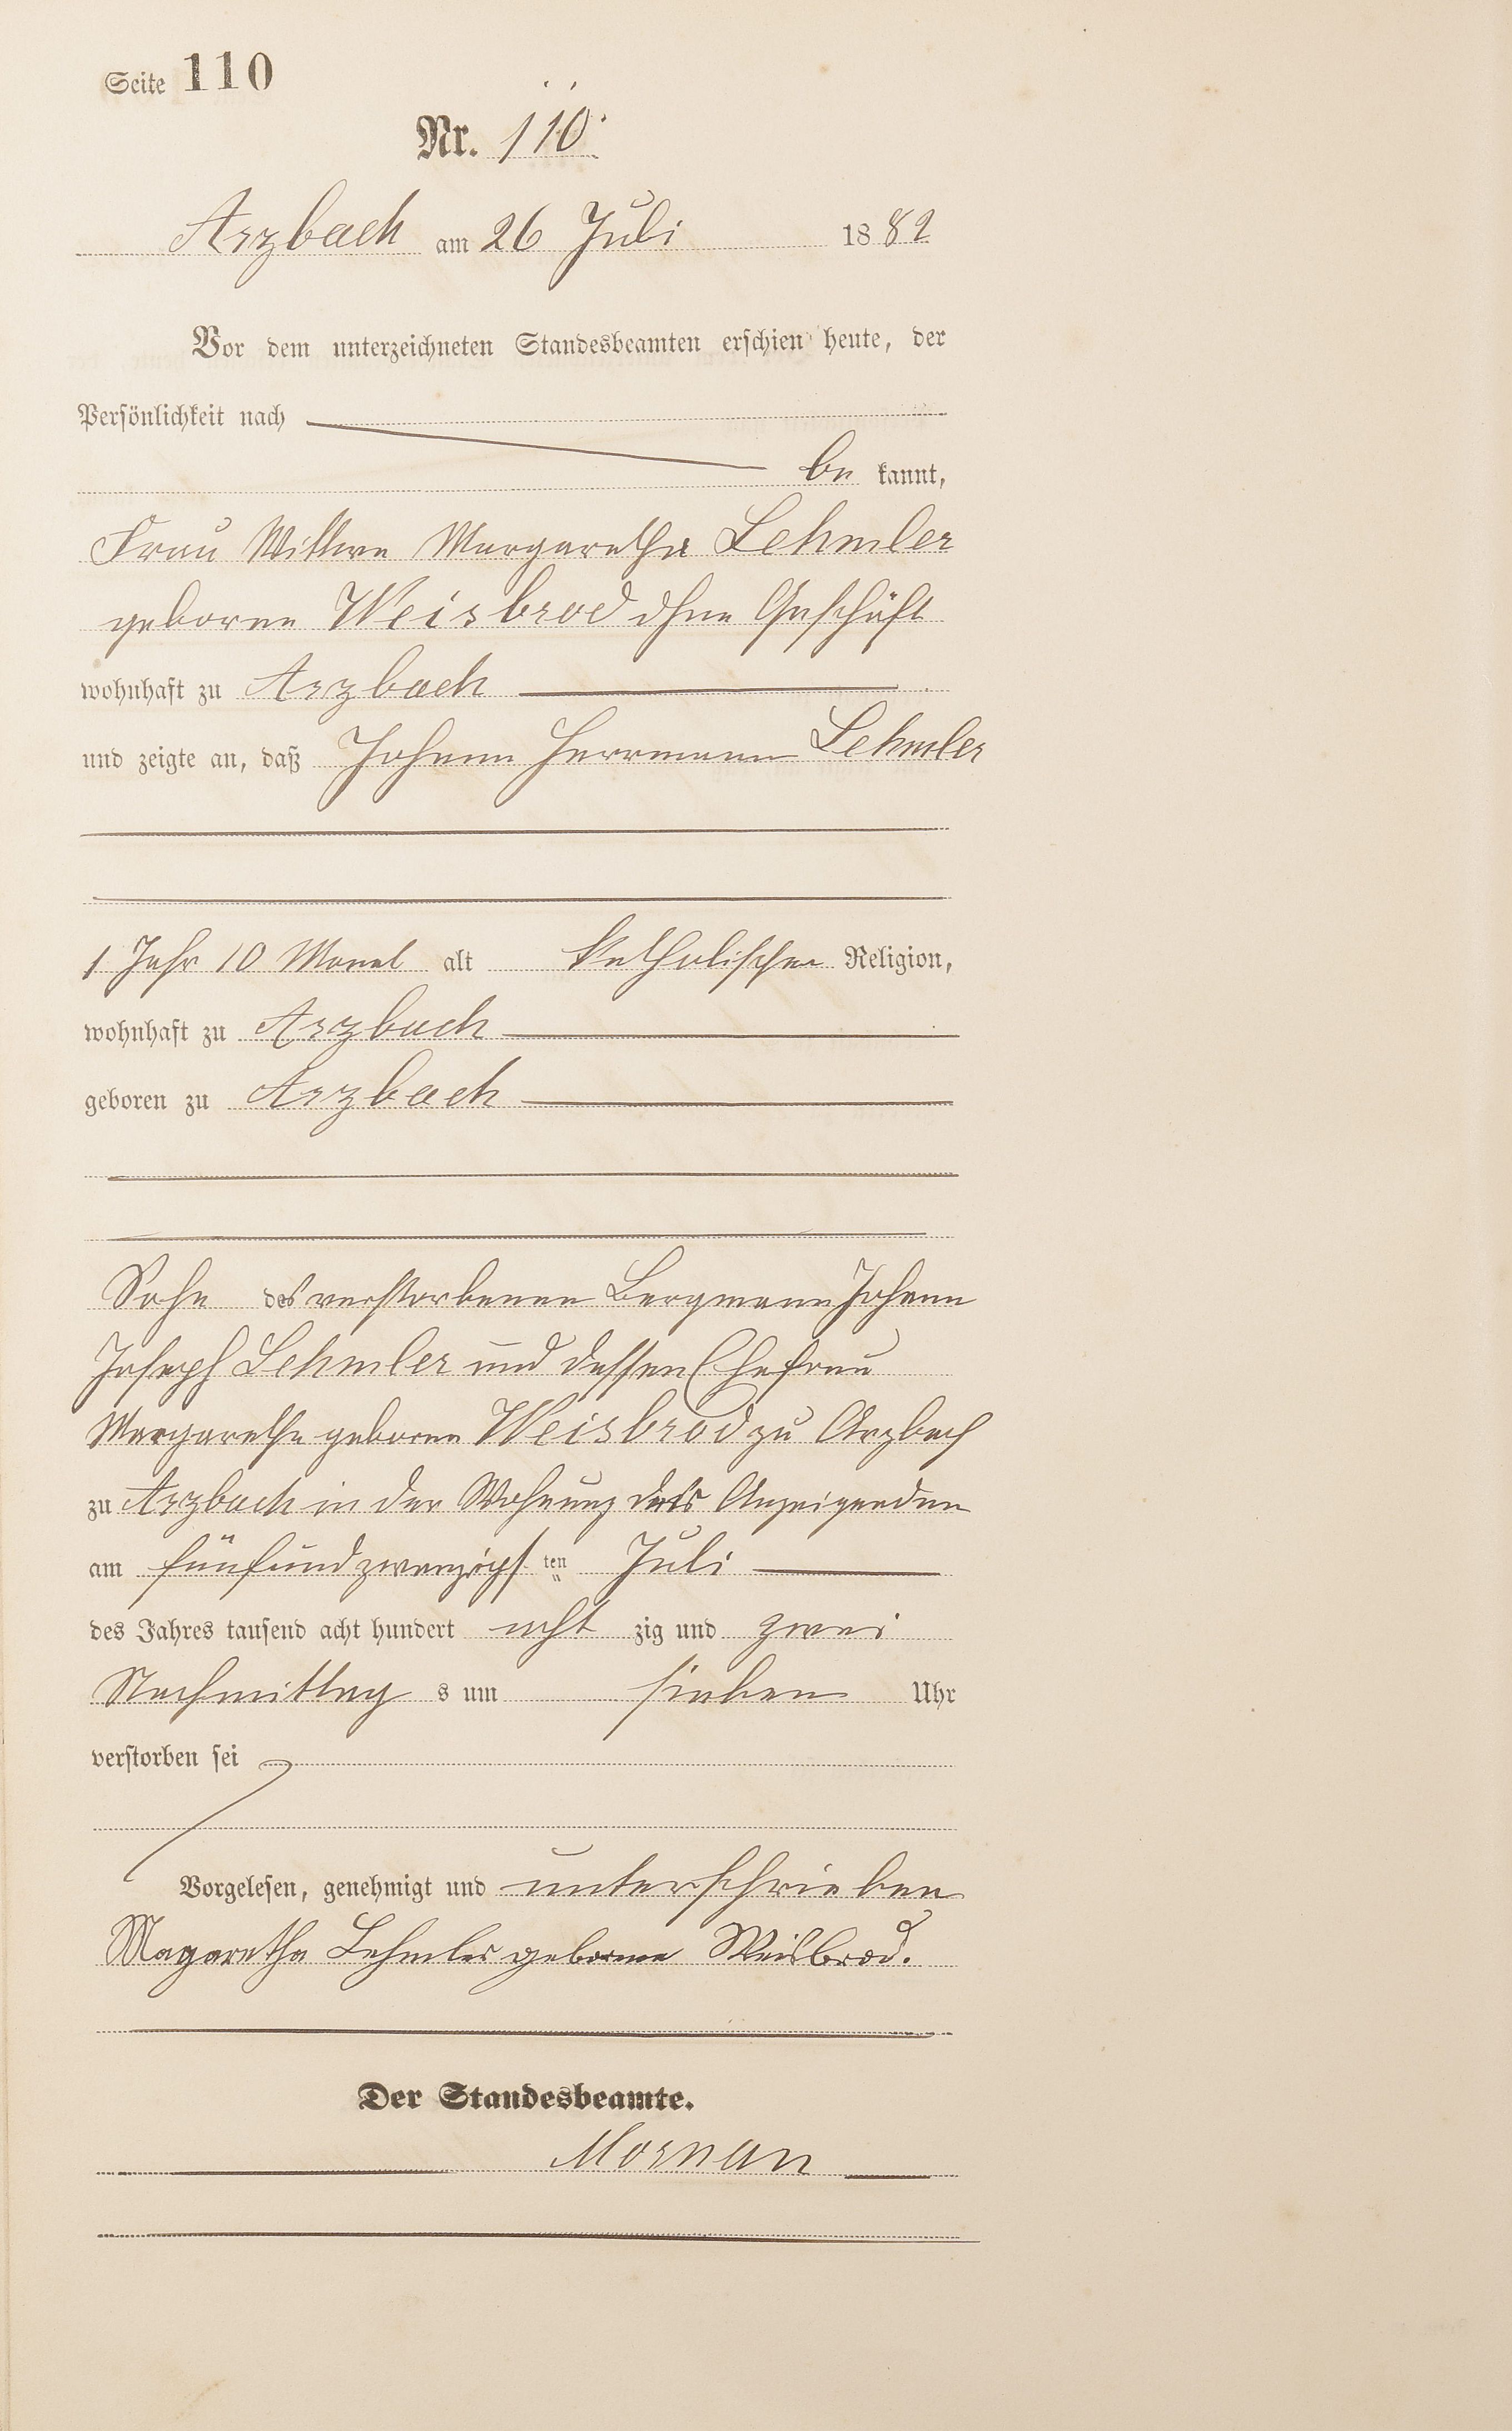 Seite 110
Nr. 110.
Arzbach am 26 Juli 1882
Vor dem unterzeichneten Standesbeamten erschien heute, der
Persönlichkeit nach
be kannt,
Frau Wittwe Margaretha Lehmler
geborne Weisbrod ohne Geschäft
wohnhaft zu Arzbach
und zeigte an, daß Johann Herrmann Lehmler
1 Jahr 10 Monat alt katholischer Religion,
wohnhaft zu Arzbach
geboren zu Arzbach
Sohn des verstorbenen Bergmann Johann
Joseph Lehmler und dessen Ehefrau
Margarethe geborne Weisbrod zu Arzbach
zu Arzbach in der Wohnung des Anzeigenden
am fünfundzwanzigs ten Juli
des Jahres tausend acht hundert acht zig und zwei
Nachmittag s um sieben Uhr
verstorben sei
Vorgelesen, genehmigt und unterschrieben
Magaretha Lehmler geborne Weisbrod.
Der Standesbeamte.